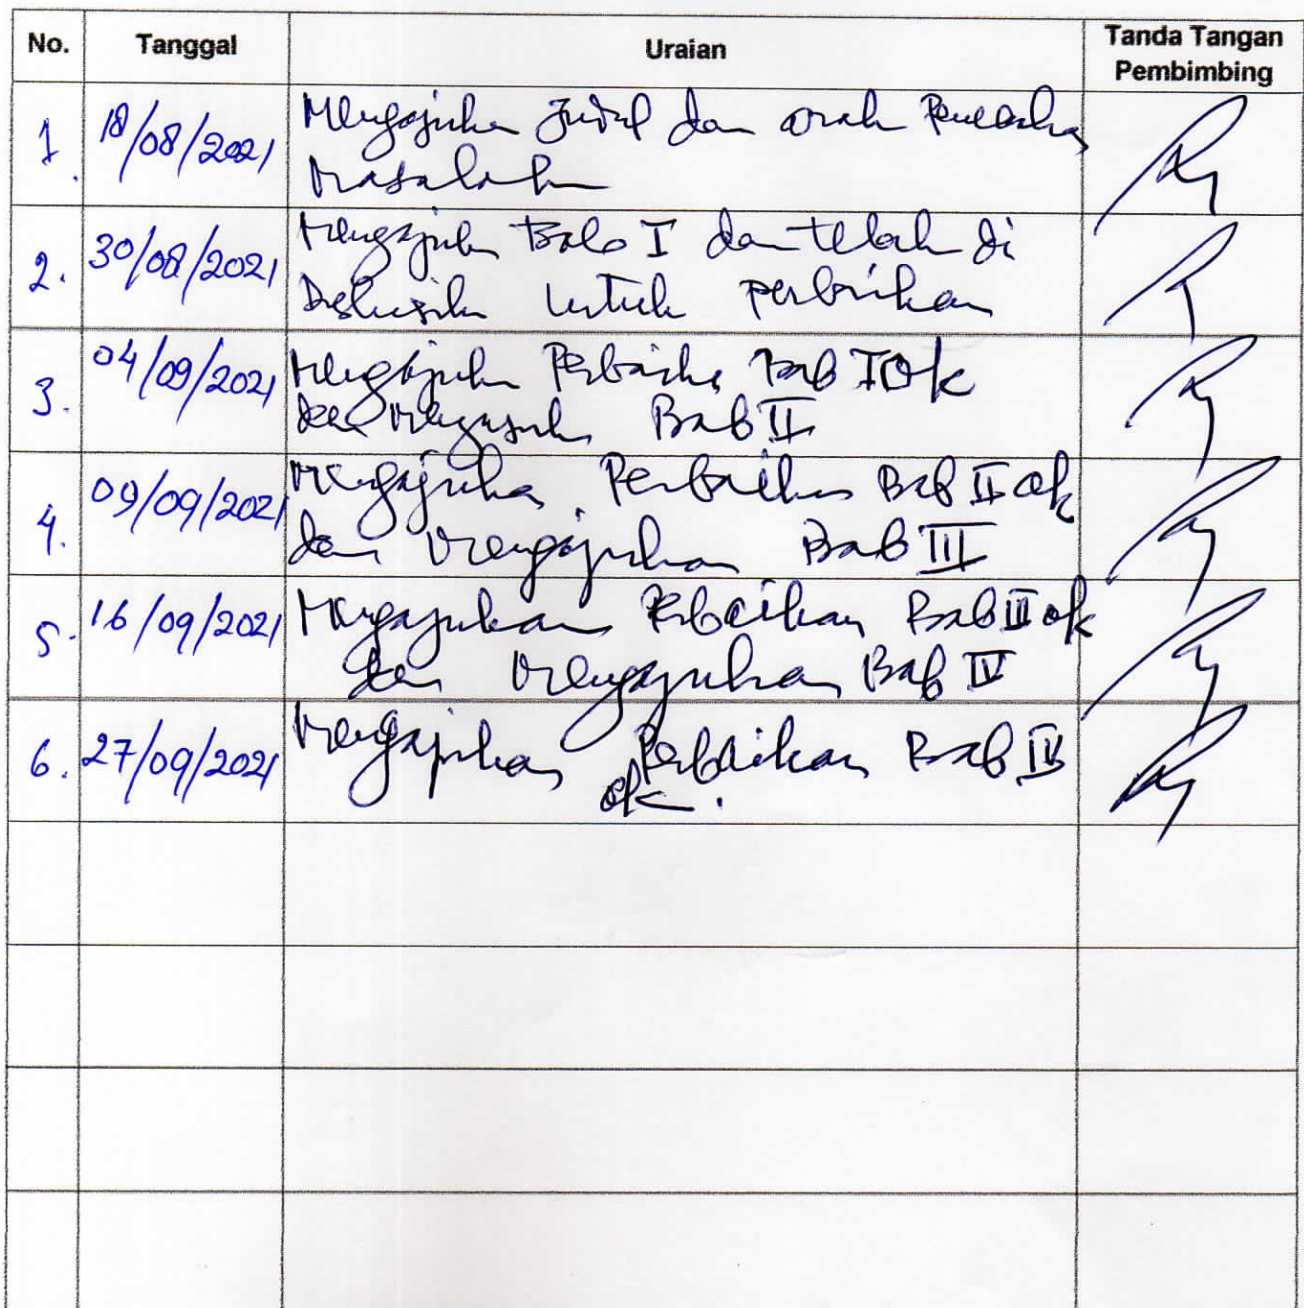 No. Tanggal Uraian Tanda Tangan Pembimbing
1. 18/08/2021 Mengajukan Judul dan arah
masalah
2. 30/08/2021 Mengajukan Bab I dan telah di
untuk perbaikan
3. 04/09/2021 Mengajukan Perbaikan Bab I Ok
dan mengajukan Bab II
4. 09/09/2021 Mengajukan Perbaikan Bab II ok
dan mengajukan Bab III
5. 16/09/2021 Mengajukan Perbaikan Bab III ok
dan mengajukan Bab IV
6. 27/09/2021 Mengajukan Perbaikan Bab IV
ok.